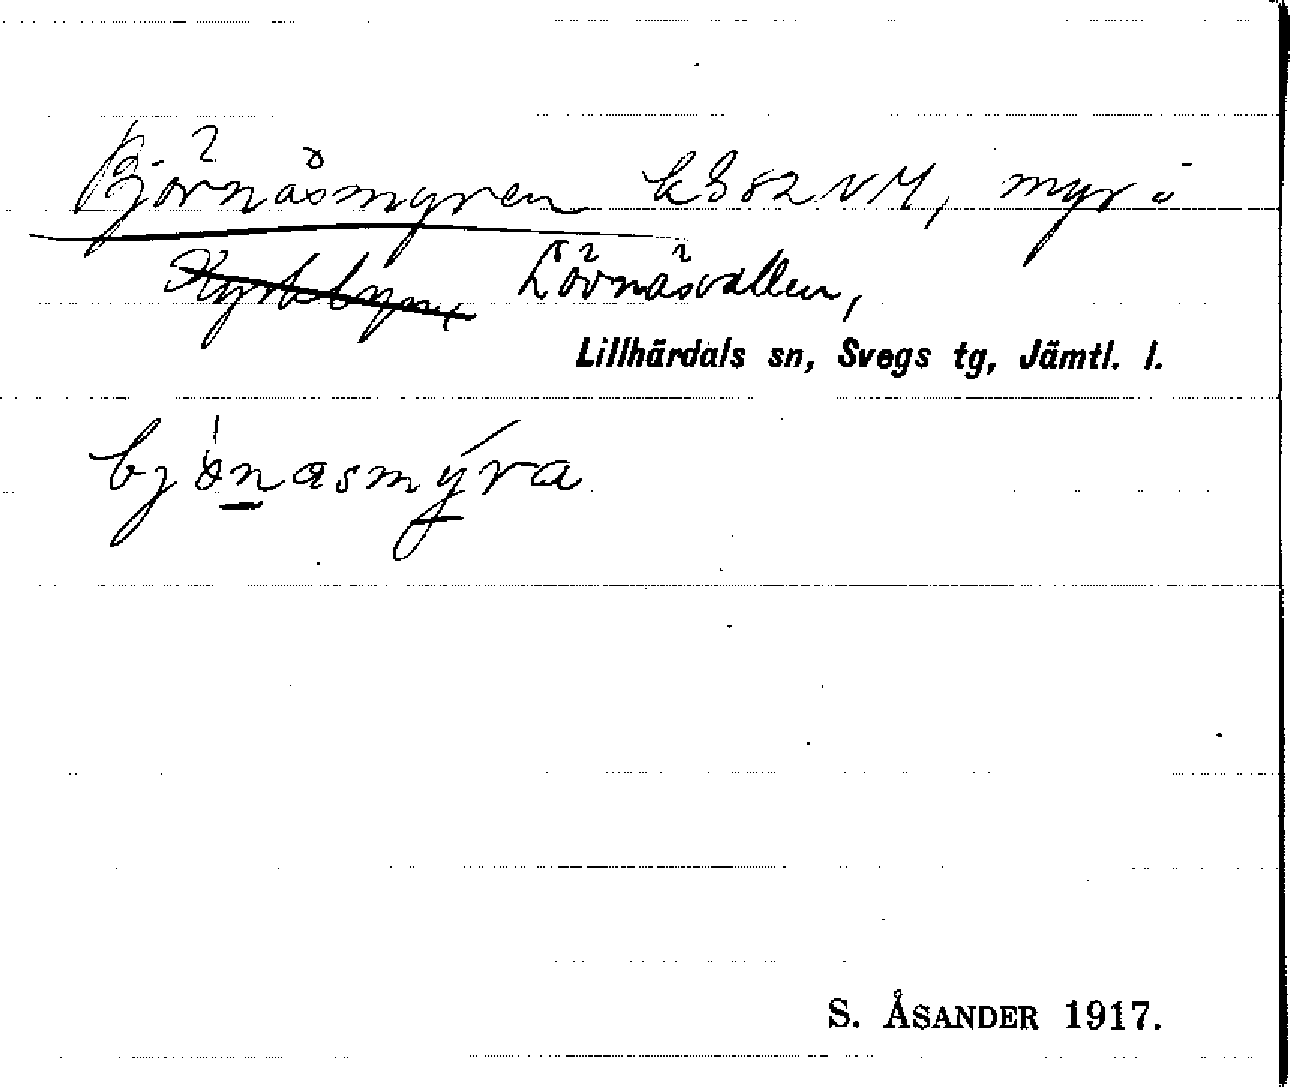 Björnåsmyren k382NM, myr i
Kyrkbyn Lövnäsvallen,
Lillhärdals sn, Svegs tg, Jämtl. l.
bjönasmýra
S. ÅSANDER 1917.